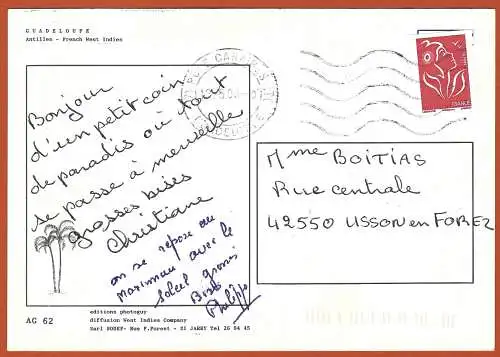 GUADELOUPE
Antilles - French West Indies
Bonjour
d'un petit coin
de paradis où tout
se passe à merveille
grosses bises
Christiane
on se repose au
maximum avec le
soleil grosses
Bises
Philippe
AG 62
editions photoguy
diffusion West Indies Company
Sarl - ZI JARRY Tel 26 84 45
FRANCE
Mme BOITIAS
Rue centrale
42550 USSON en FOREZ